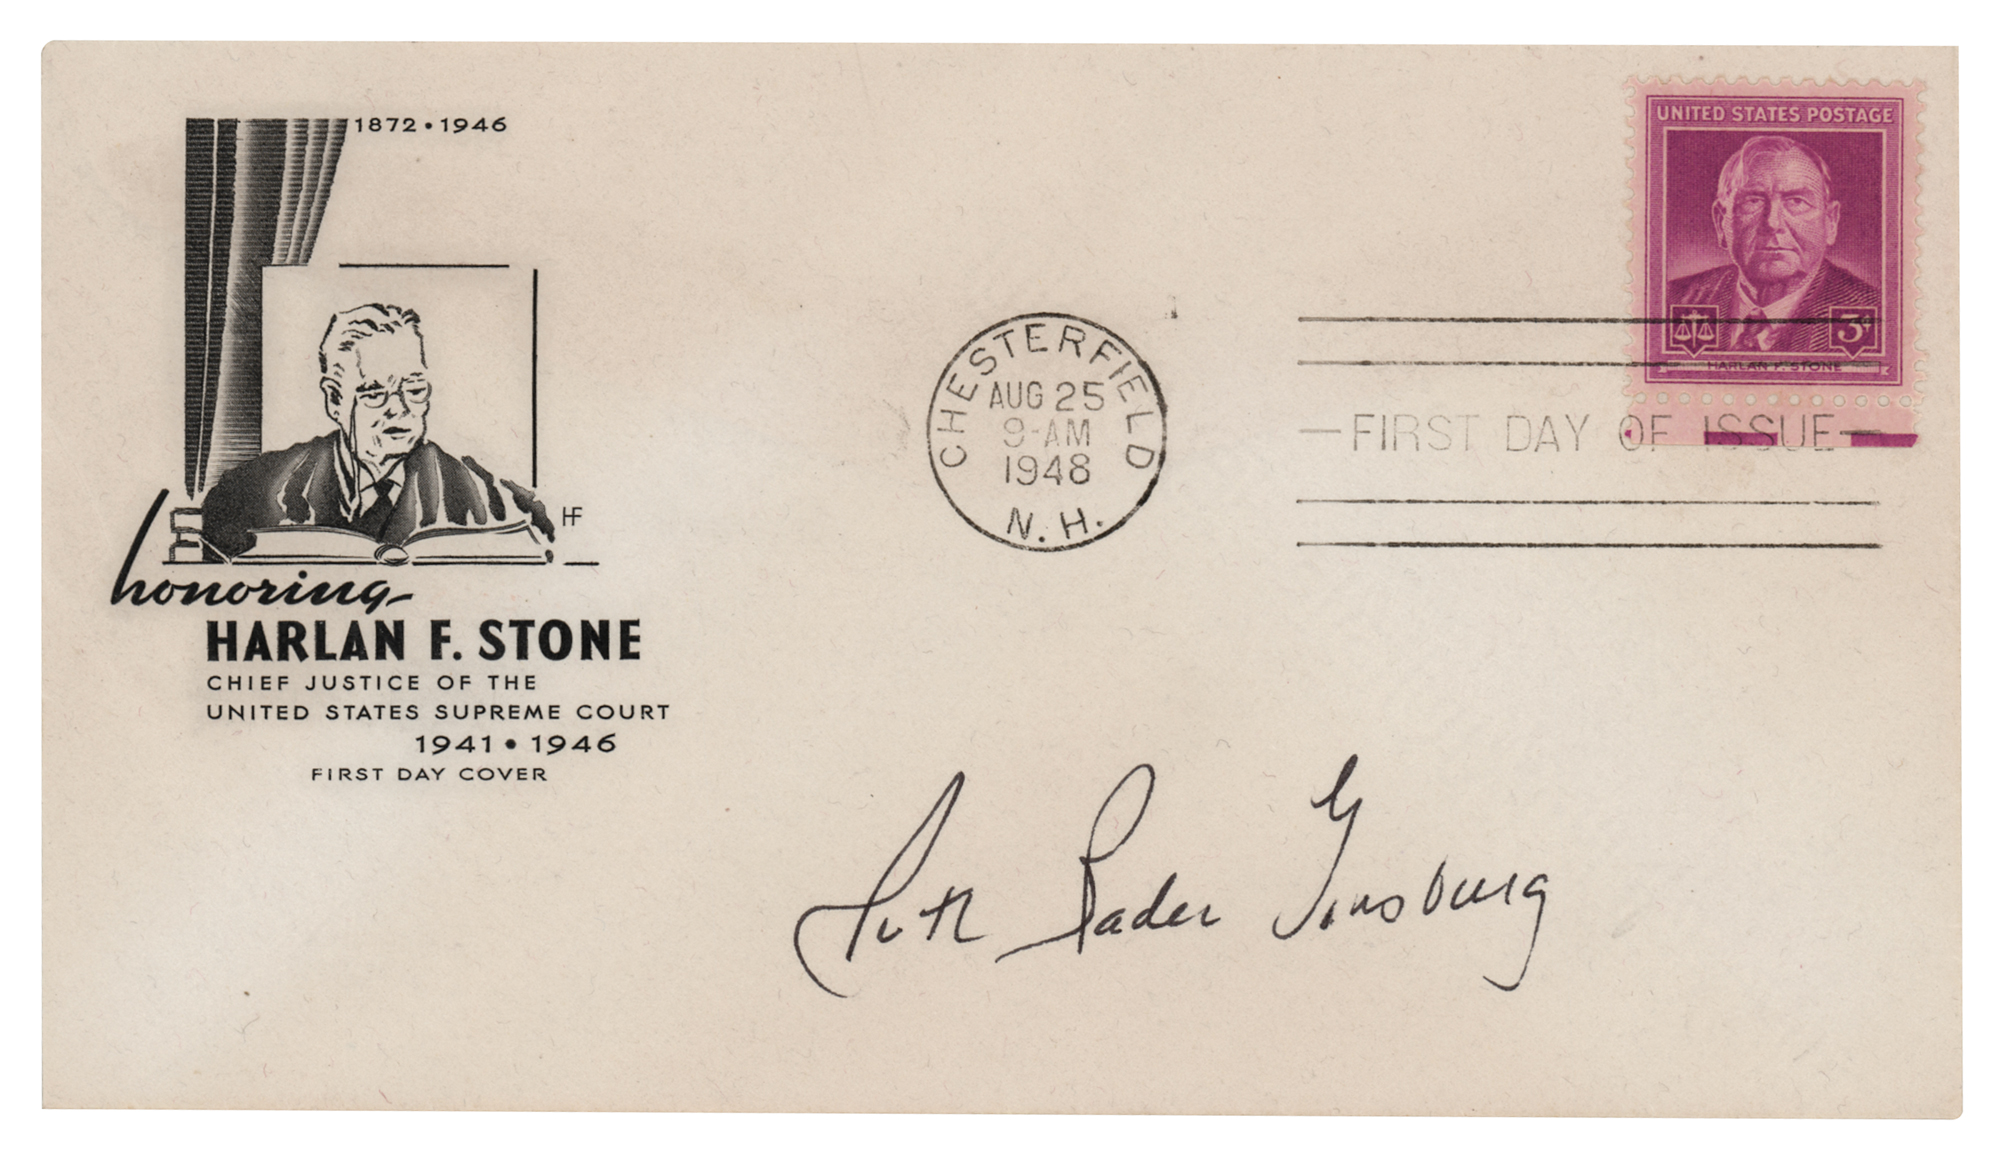 1872 • 1946
HF
honoring
HARLAN F. STONE
CHIEF JUSTICE OF THE
UNITED STATES SUPREME COURT
1941 • 1946
FIRST DAY COVER
CHESTERFIELD
AUG 25
9-AM
1948
N.H.
UNITED STATES POSTAGE
3¢
HARLAN F. STONE
—FIRST DAY OF ISSUE—
Ruth Bader Ginsburg